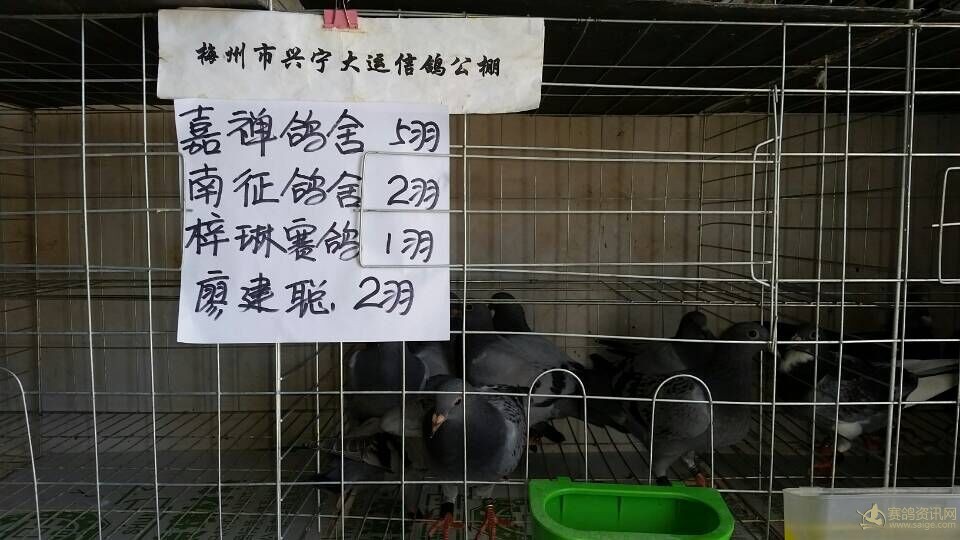 梅州市兴宁大运信鸽公棚
嘉禅鸽舍 5羽
南征鸽舍 2羽
梓琳赛鸽 1羽
廖建聪. 2羽
赛鸽资讯网
www.saige.com